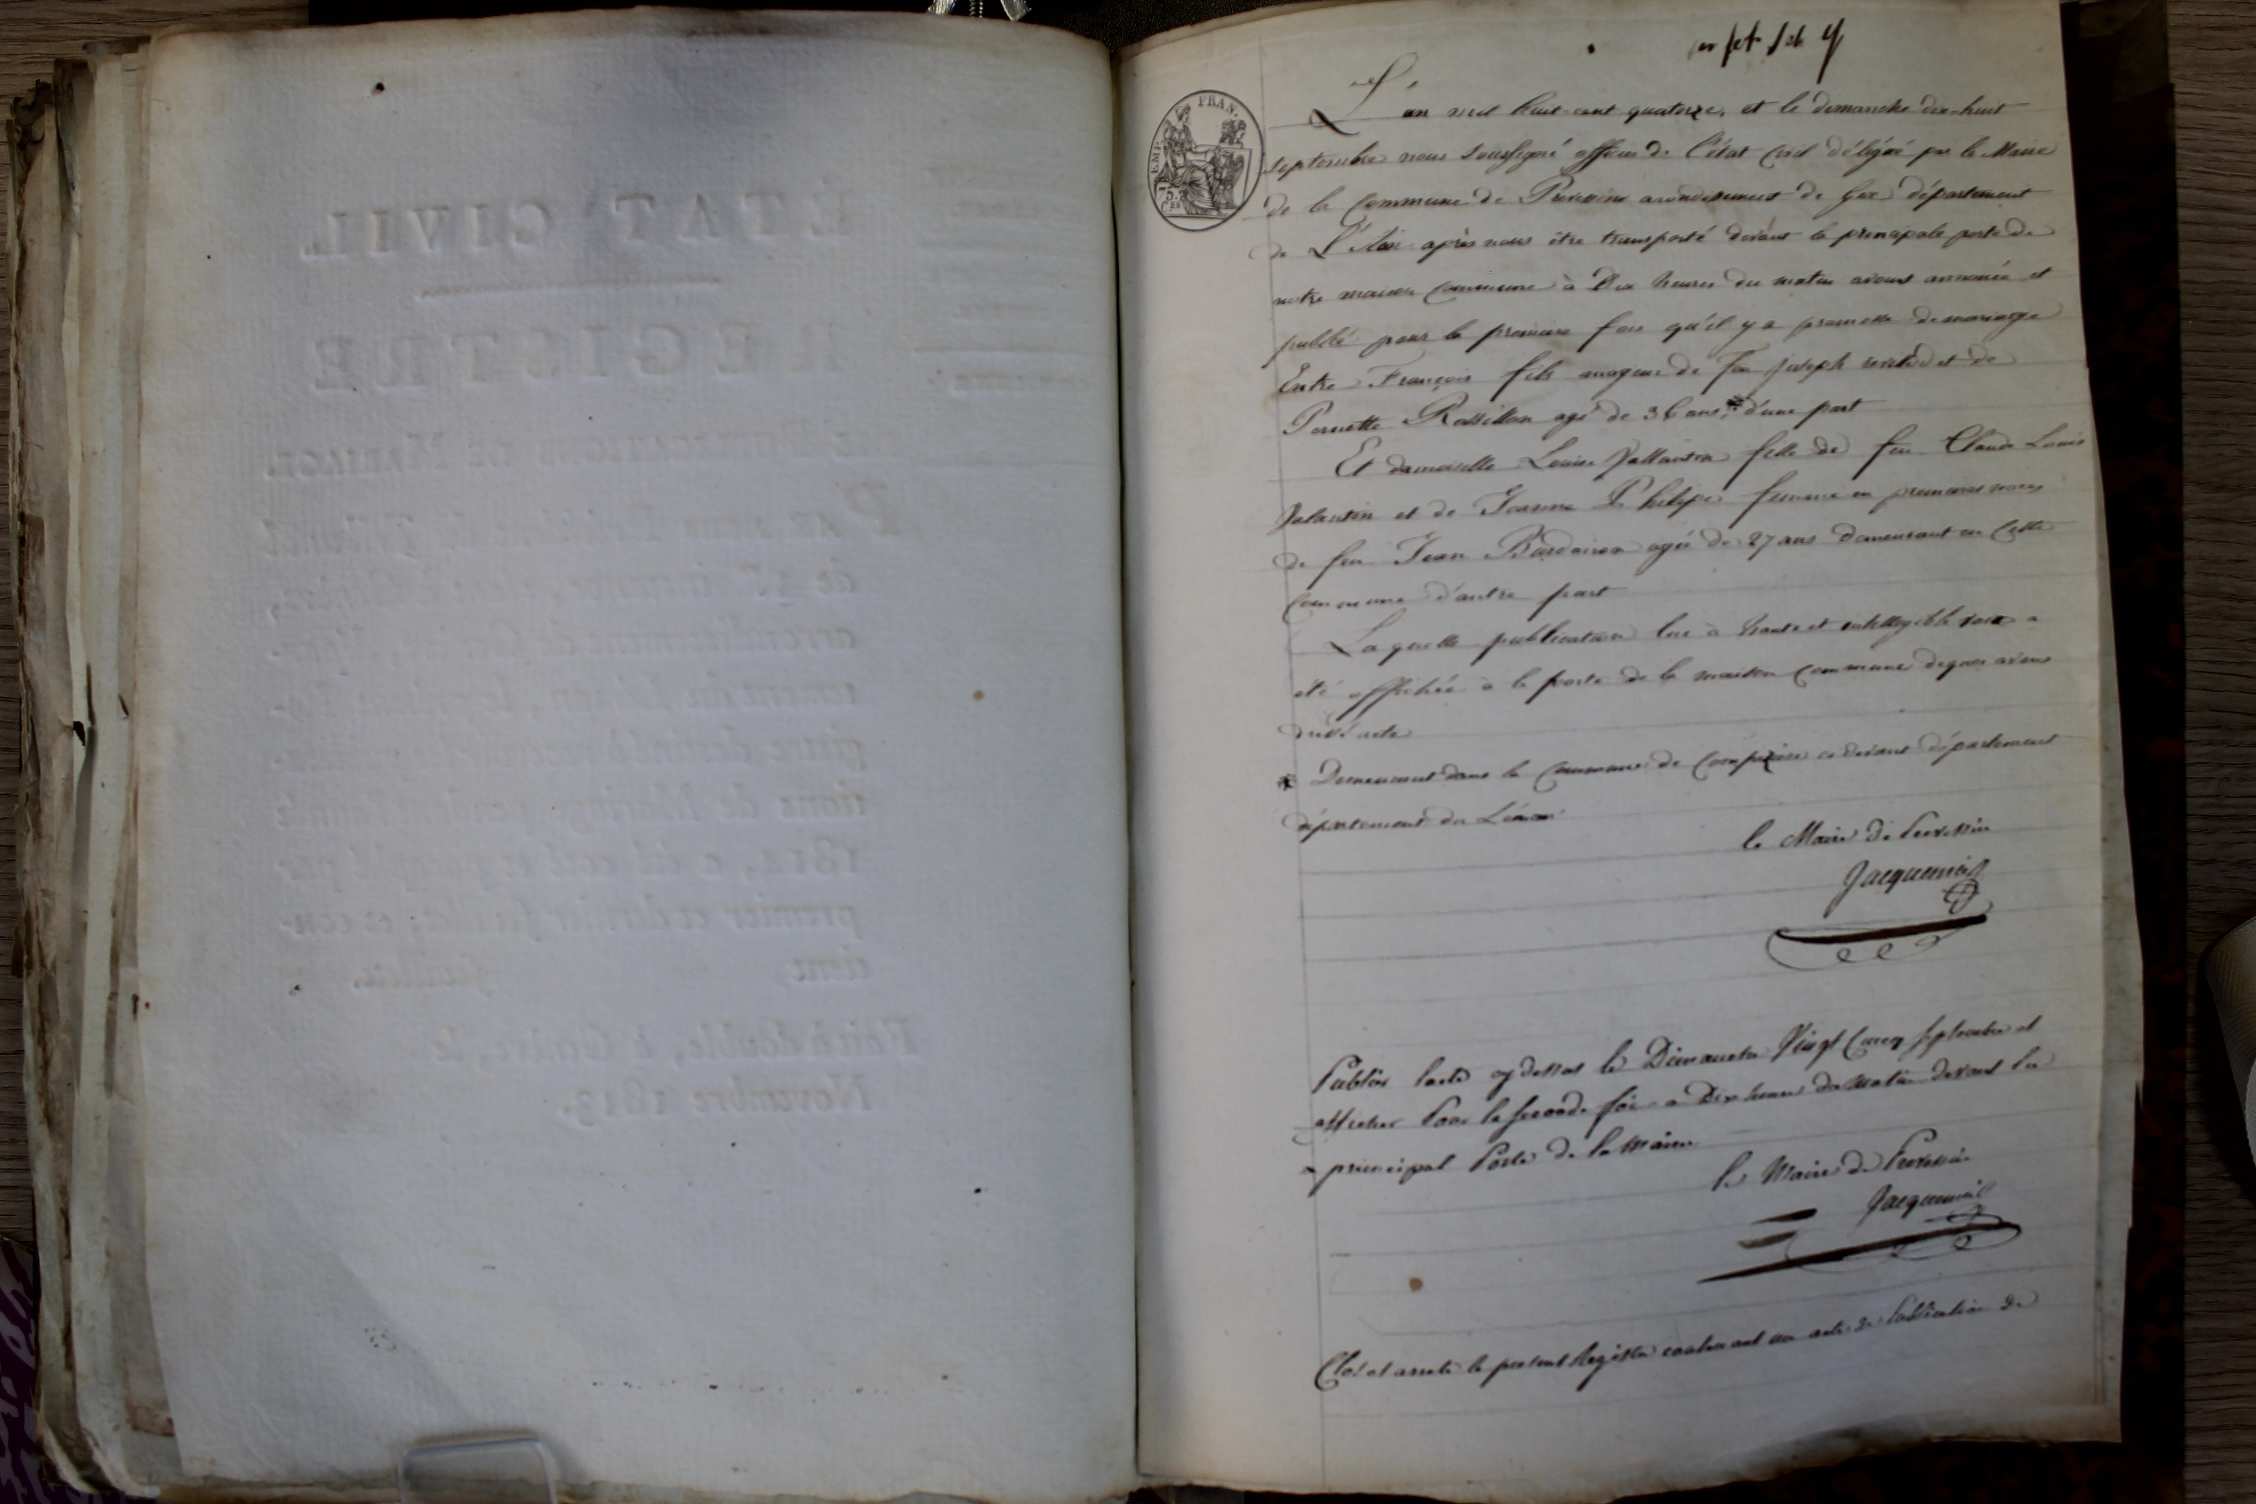 ÉTAT CIVIL
REGISTRE
DE PUBLICATIONS DE MARIAGE.
PAR NOUS Président du Tribunal
de 1re instance, séant
arrondissement de
tement de l'Ain, le présent Re-
gistre destiné
tions de Mariage pendant l'année
1814, a été coté et paraphé par
premier et dernier feuillet; et con-
tient feuillets.
Fait à double, à le
Novembre 1813.
EMP. FRAN.
L'an mil huit cent quatorze, et le dimanche dix-huit
septembre nous soussigné officier de l'état civil délégué par le Maire
de la Commune de Prevessin arondissement de Gex département
de L'Ain après nous être transporté devant la principale porte de
notre maison commune à Dix heures du matin avons annoncé et
publié pour la premiere fois qu'il y a promesse de mariage
Entre François fils mageur de feu Joseph et de
Pernette Rossillon agé de 36 ans * d'une part
Et demoiselle Louise Vallantin fille de feu Claude Louis
Valantin et de Jeanne Philipe femme en premieres noces
de feu Jean agée de 27 ans demeurant en cette
Commune d'autre part
Laquelle publication lue à haute et intelligible voix a
été affichée à la porte de la maison commune dequoi avons
dressé acte
* Demeurant dans la Commune de ci devant département
département du Léman
le Maire de Prevessin
Jacquemier
Publier lacte cy dessus le Dimanche Vingt Cinq septembre et
afficher Pour la seconde foi a Dix heures du Matin devant la
principal Porte de la Mairie
le Maire de Prevessin
Jacquemier
Clos et arreté le present Registre contenant un acte de Publication de